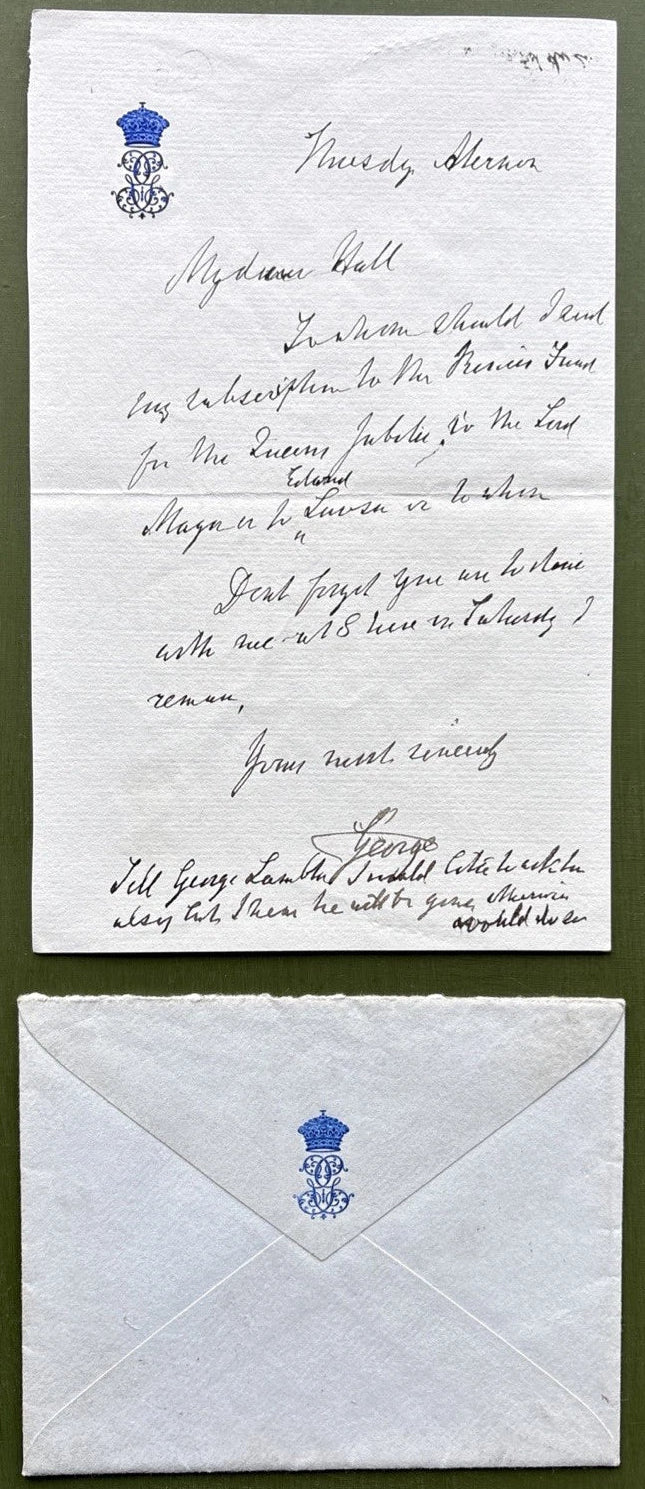 Thursdy Afternoon
My dear Hall
To whom should I send
my subscription to the Fund
for the Queens Jubilee, to the Lord
Mayor or to Edward Lawson or to whom
Dont forget you are to dine
with me at 8 here on Saturday I
remain,
Yours most sincerely
George
Tell George I would like to ask him
also, but I hear he will be gone, otherwise
would do so